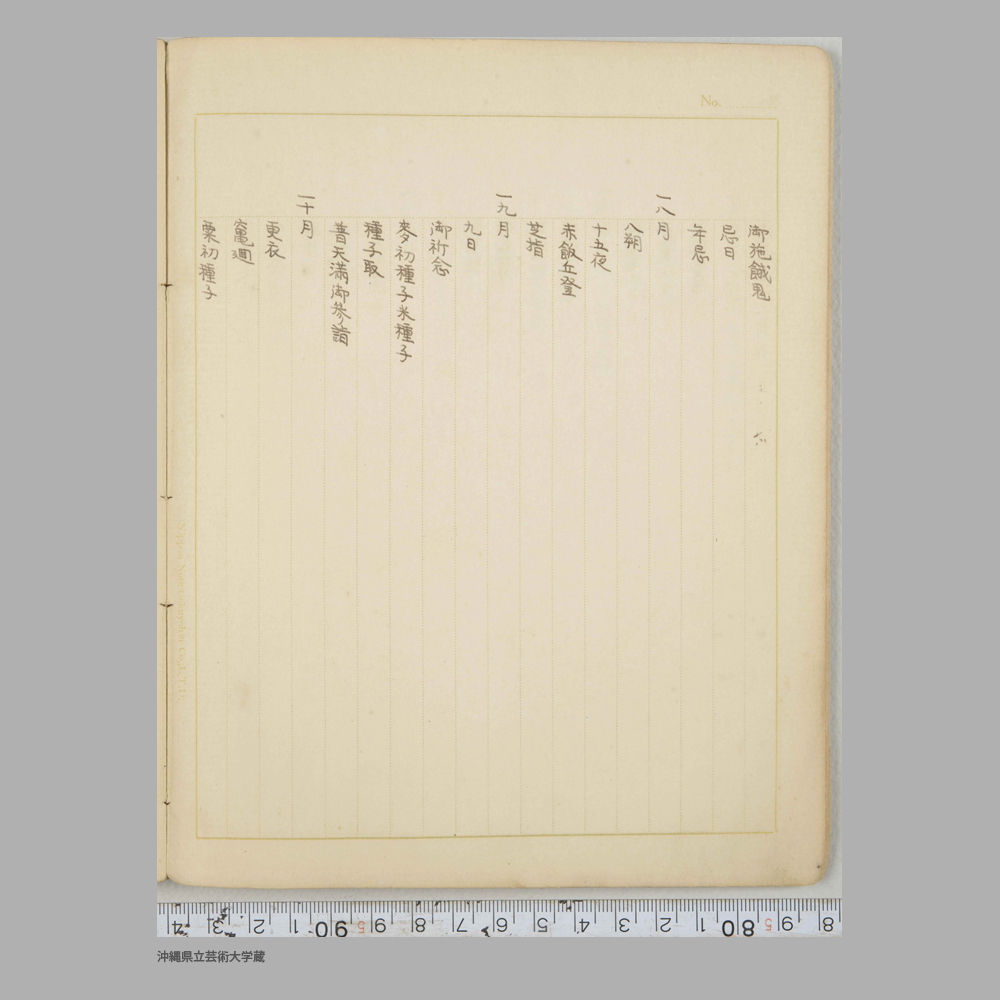 No.
御施餓鬼
忌日
年忌
一八月
八朔
十五夜
赤飯丘登
芝指
一九月
九日
御祈念
麥初種子米種子
種子取
普天満御參詣
一十月
更衣
竃廻
粟初種子
沖縄県立芸術大学蔵